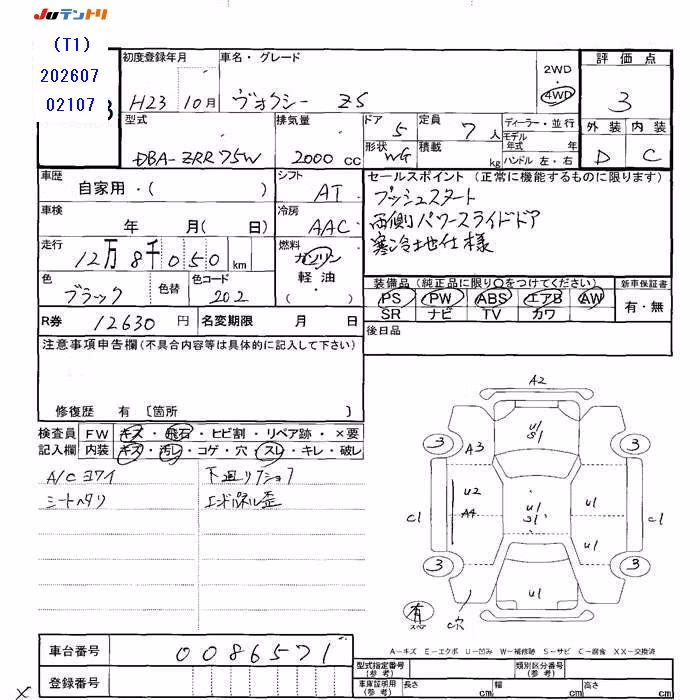 JUテントリ
(T1)
202607
02107
3
初度登録年月 車名・グレード
H23 10月 ヴォクシー ZS
2WD
4WD
評価点
3
外装 内装
D C
型式 排気量 ドア 定員 ディーラー・並行
DBA-ZRR75W 2000 cc 5 7人
モデル年式 年
形状 WG 積載 kg ハンドル 左・右
車歴 シフト セールスポイント (正常に機能するものに限ります)
自家用・( ) AT
プッシュスタート
両側パワースライドドア
寒冷地仕様
車検 冷房
年 月( 日) AAC
走行 燃料
12万8千050km ガソリン
軽油
( )
色 色替 色コード
ブラック 202
装備品 (純正品に限り○をつけてください) 新車保証書
PS PW ABS エアB AW
SR ナビ TV カワ
有・無
R券 12630円 名変期限 月 日
後日品
注意事項申告欄(不具合内容等は具体的に記入して下さい)
修復歴 有 〔箇所 〕
検査員 FW キズ・飛石・ヒビ割・リペア跡・×要
記入欄 内装 キズ・汚レ・コゲ・穴・スレ・キレ・破レ
A/Cヨワイ
シートヘタリ
A2
U1
S1
3 A3 3
U2
A4 U1 U1
S1
C1 U1 C1
3 3
U1
有
C穴
A－キズ E－エクボ U－凹み W－補修跡 S－サビ C－腐食 XX－交換済
車台番号 0086571
登録番号
型式指定番号(参考) 類別区分番号(参考)
車庫証明用(参考) 長さ cm 幅 cm 高さ cm
×